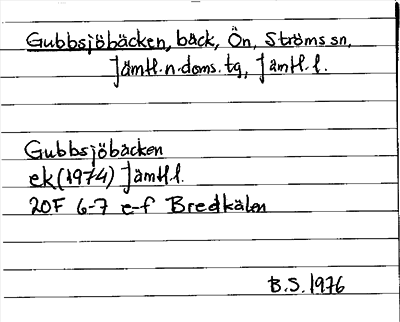 Gubbsjöbäcken, bäck, Ön, Ströms sn,
Jämtl. n. doms. tg, Jämtl. l.
Gubbsjöbäcken
ek (1974) Jämtl. l.
20F 6-7 e-f Bredkälen
B.S. 1976